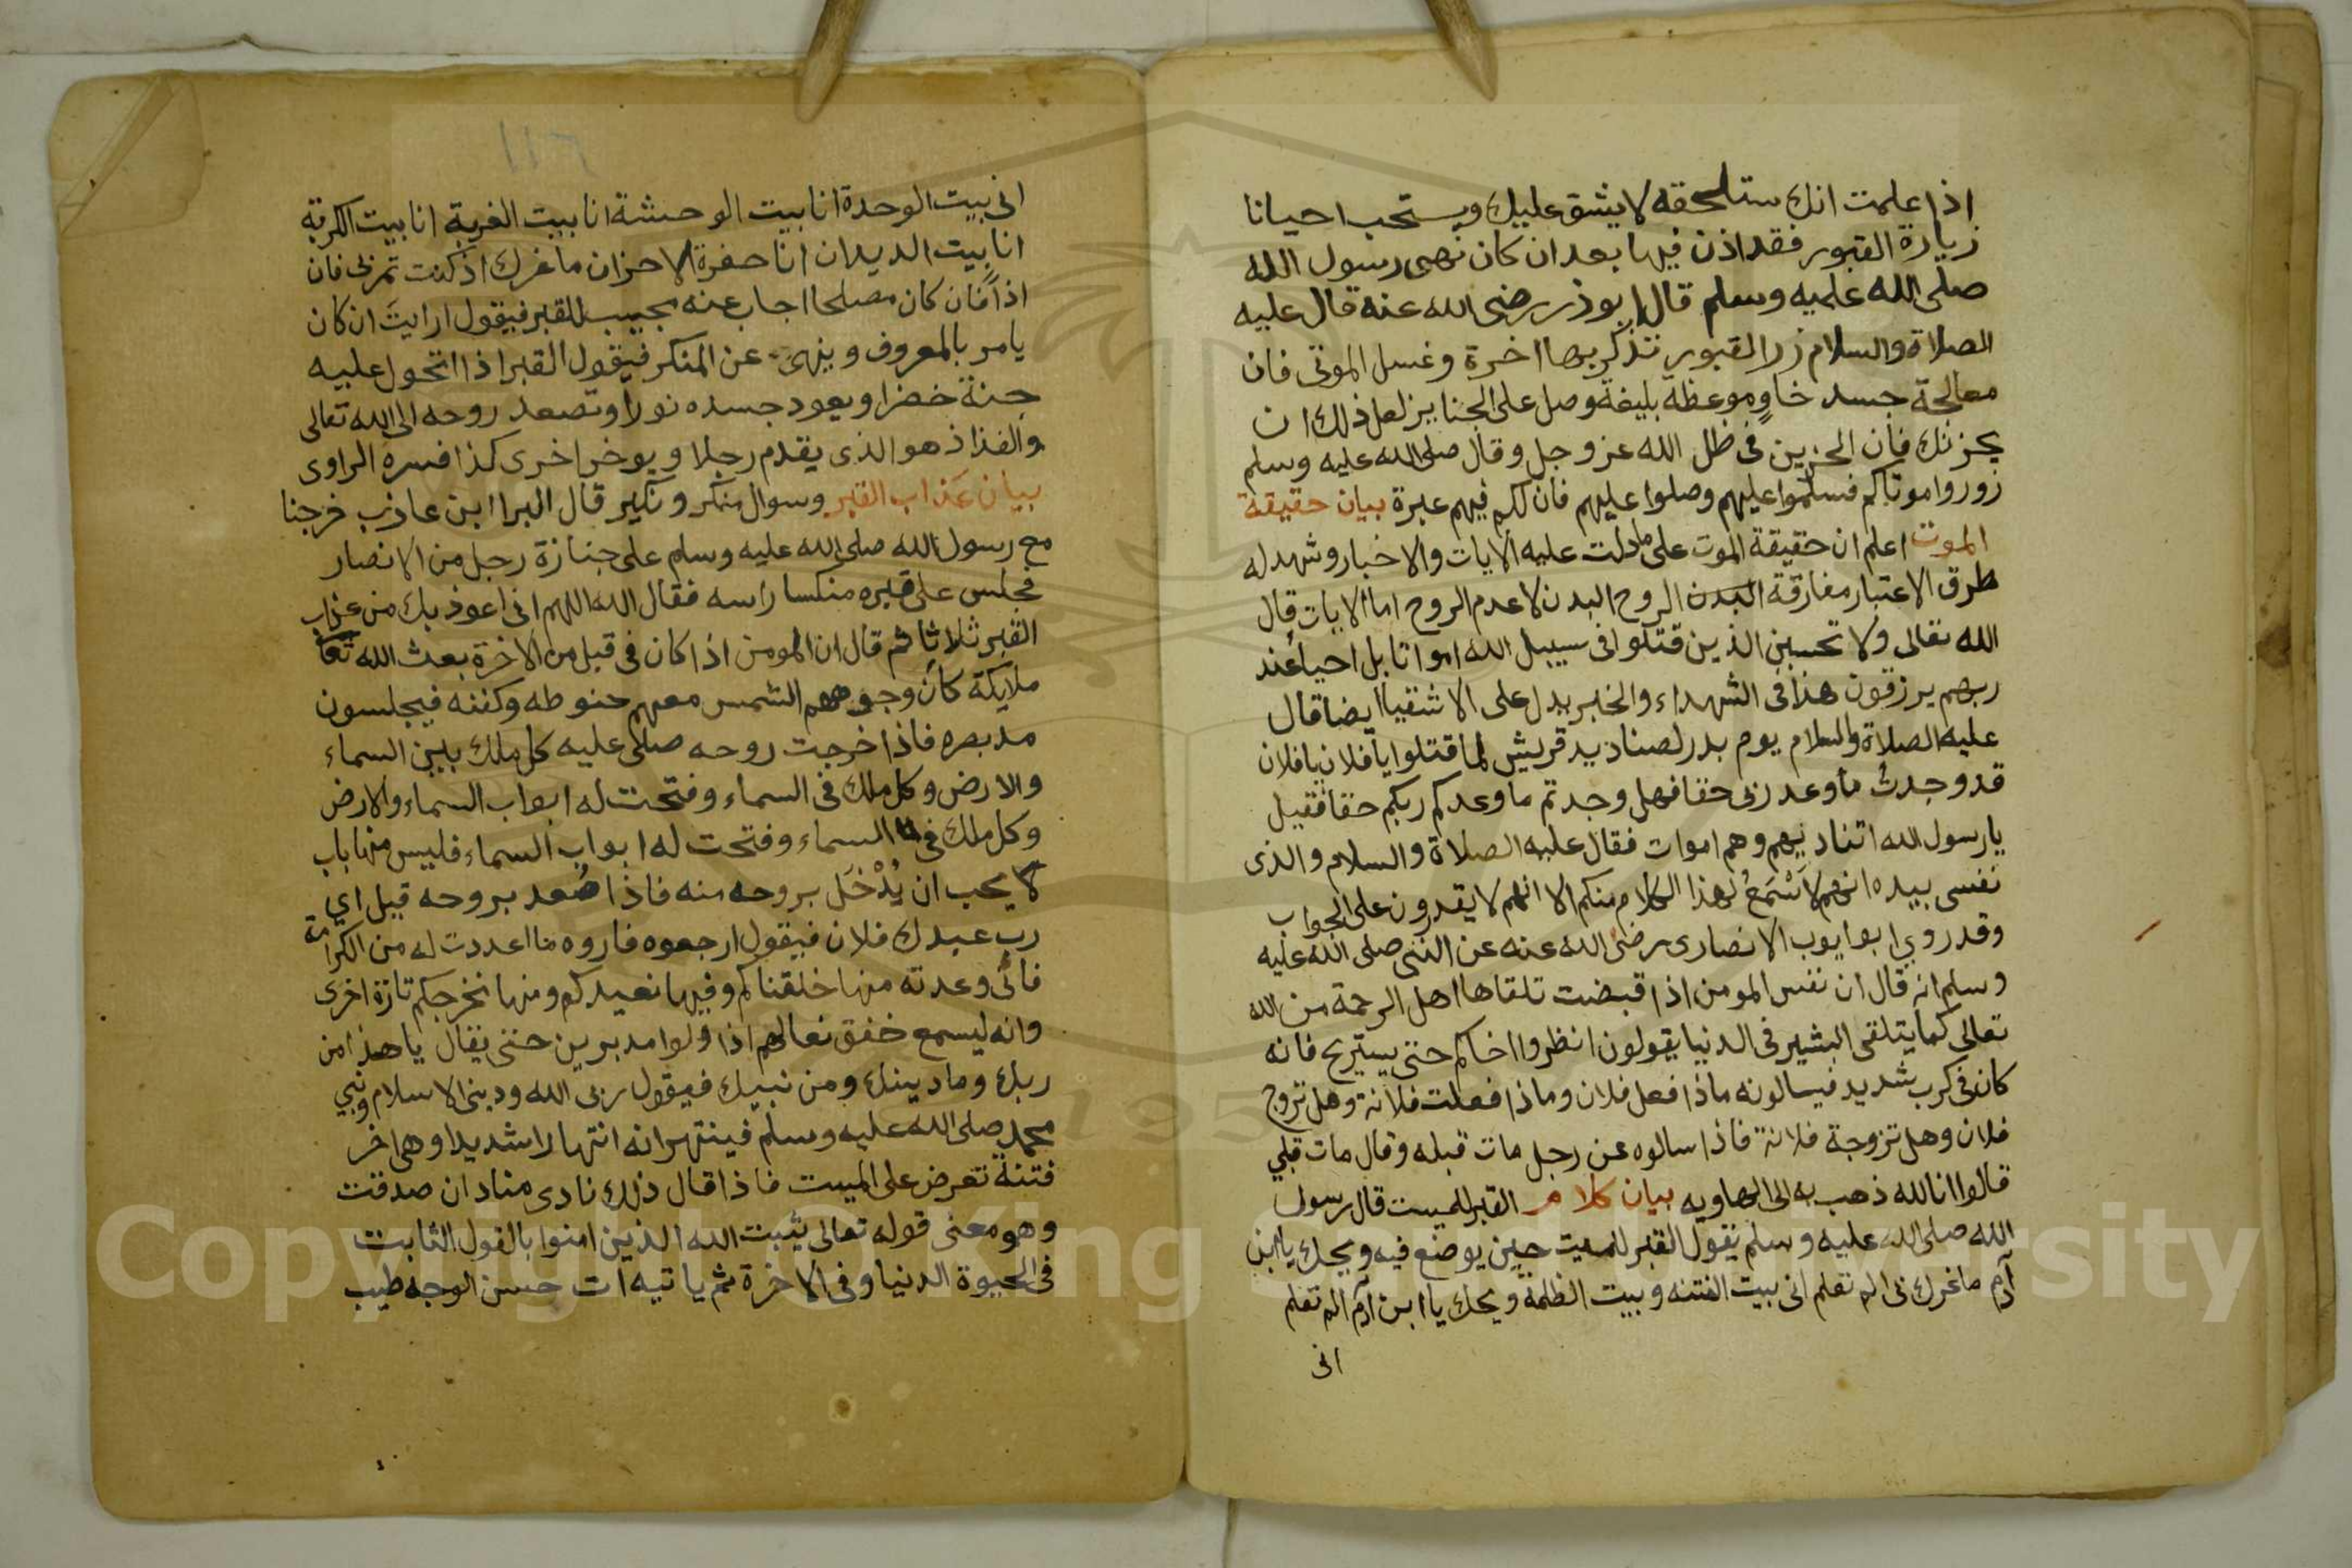 اذا علمت انك ستلحقه لا يشق عليك ويستحب احيانا
زيارة القبور فقد اذن فيها بعد ان كان نهى رسول الله
صلى الله عليه وسلم قال ابو ذر رضى الله عنه قال عليه
الصلاة والسلام زر القبور تذكر بها اخرة وغسل الموتى فان
معالجة جسد خاوٍ موعظة بليغة وصل على الجنايز لعل ذلك ان
يحزنك فان الحزين فى ظل الله عز وجل وقال صلى الله عليه وسلم
زوروا موتاكم فسلموا عليهم وصلوا عليهم فان لكم فيهم عبرة بيان حقيقة
الموت اعلم ان حقيقة الموت على ما دلت عليه الايات والاخبار وشهد له
طرق الاعتبار مفارقة البدن الروح البدن لا عدم الروح اما الايات قال
الله تعالى ولا تحسبن الذين قتلوا فى سبيل الله امواتا بل احياً عند
ربهم يرزقون هذا فى الشهداء والخبر يدل على الاشقيا ايضا قال
عليه الصلاة والسلام يوم بدر لصناديد قريش لما قتلوا يا فلان يا فلان
قد وجدتُ ما وعد ربى حقا فهل وجدتم ما وعدكم ربكم حقا فقيل
يا رسول الله اتناديهم وهم اموات فقال عليه الصلاة والسلام والذى
نفسى بيده انهم لاَسْمَعُ لهذا الكلام منكم الا انهم لا يقدرون على الجواب
وقد روي ابو ايوب الانصارى رضى الله عنه عن النبى صلى الله عليه
وسلم انه قال ان نفس المومن اذا قبضت تلقاها اهل الرحمة من الله
تعالى كما يتلقى البشير فى الدنيا يقولون انظروا اخاكم حتى يستريح فانه
كان فى كرب شديد فيسالونه ماذا فعل فلان وماذا فعلت فلانة وهل تزوج
فلان وهل تزوجة فلانة فاذا سالوه عن رجل مات قبله وقال مات قبلي
قالوا انا لله ذهب به الى الهاويه بيان كلام القبر للميت قال رسول
الله صلى الله عليه وسلم يقول القبر للميت حين يوضع فيه ويحك يا ابن
آدم ما غرك بى الم تعلم انى بيت الفتنه وبيت الظلمة ويحك يا ابن آدم الم تعلم
انى
١١٦
انى بيت الوحدة انا بيت الوحشة انا بيت الغربة انا بيت الكربة
انا بيت الديدان انا حفرة الاحزان ما غرك اذ كنت تمر بى فان
اذاً فان كان مصلحا اجاب عنه مجيب للقبر فيقول ارايتَ ان كان
يامر بالمعروف وينهى عن المنكر فيقول القبر اذا اتحول عليه
جنة خضرا ويعود جسده نوراً وتصعد روحه الى الله تعالى
والفذاذ هو الذى يقدم رجلا ويوخر اخرى كذا فسره الراوى
بيان عَذاب القبر وسوال منكر ونكير قال البرا ابن عاذب خرجنا
مع رسول الله صلى الله عليه وسلم على جنازة رجل من الانصار
فجلس على قبره منكسا راسه فقال الله اللهم انى اعوذ بك من عذاب
القبر ثلاثا ثم قال ان المومن اذا كان فى قبل من الاخرة بعث الله تعا
ملايكة كان وجوههم الشمس معهم حنوطه وكفنه فيجلسون
مد بصره فاذا خرجت روحه صلى عليه كل ملك بين السماء
والارض وكل ملك فى السماء وفتحت له ابواب السماء والارض
وكل ملك فى السماء وفتحت له ابواب السماء فليس منها باب
لا يحب ان يُدْخَل بروحه منه فاذا صُعد بروحه قيل اي
رب عبدك فلان فيقول ارجعوه فاروه ما اعددت له من الكرامة
فانى وعدته منها خلقناكم وفيها نعيدكم ومنها نخرجكم تارة اخرى
وانه ليسمع خفق نعالهم اذا ولوا مدبرين حتى يقال يا هذا من
ربك وما دينك ومن نبيك فيقول ربى الله ودينى الاسلام ونبي
محمد صلى الله عليه وسلم فينتهرانه انتهارا شديدا وهى اخر
فتنة تعرض على الميت فاذا قال ذلك نادى مناد ان صدقت
وهو معنى قوله تعالى يثبت الله الذين امنوا بالقول الثابت
فى الحيوة الدنيا وفى الاخرة ثم ياتيه ات حسن الوجه طيب
Copyright © King Saud University